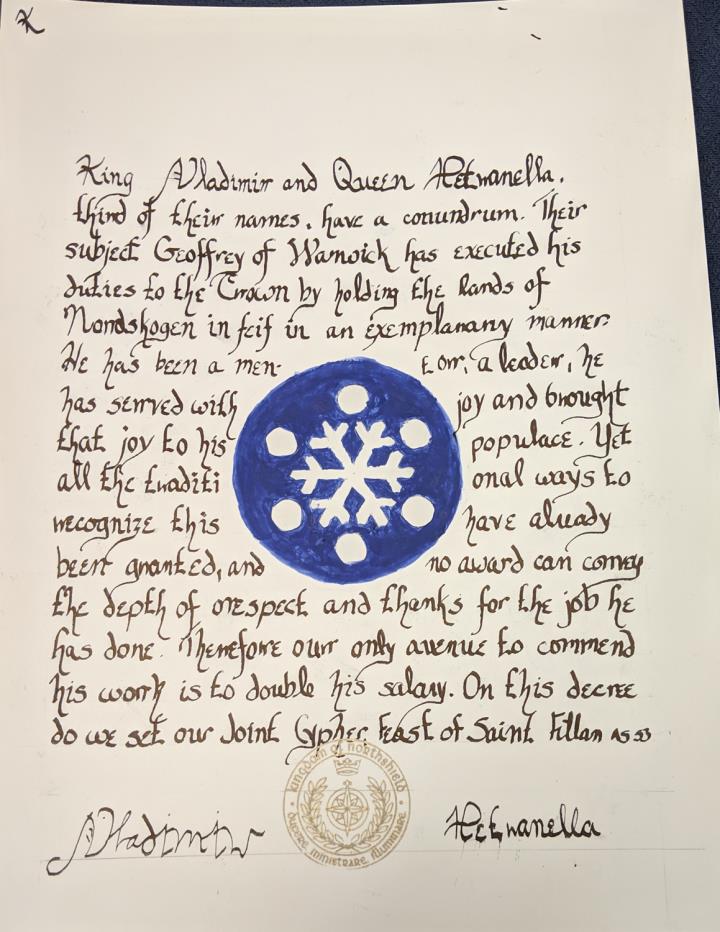 K
King Vladimir and Queen Petranella,
third of their names, have a conundrum. Their
subject Geoffrey of Warwick has executed his
duties to the Crown by holding the lands of
Nordskogen in feif in an exemplarary manner.
He has been a men- tor, a leader, he
has served with joy and brought
that joy to his populace. Yet
all the traditi onal ways to
recognize this have already
been granted, and no award can convey
the depth of respect and thanks for the job he
has done. Therefore our only avenue to commend
his work is to double his salary. On this decree
do we set our Joint Cypher Feast of Saint Fillan AS 53
kingdom of northshield
ducere ministrare illuminare
Vladimir Petranella